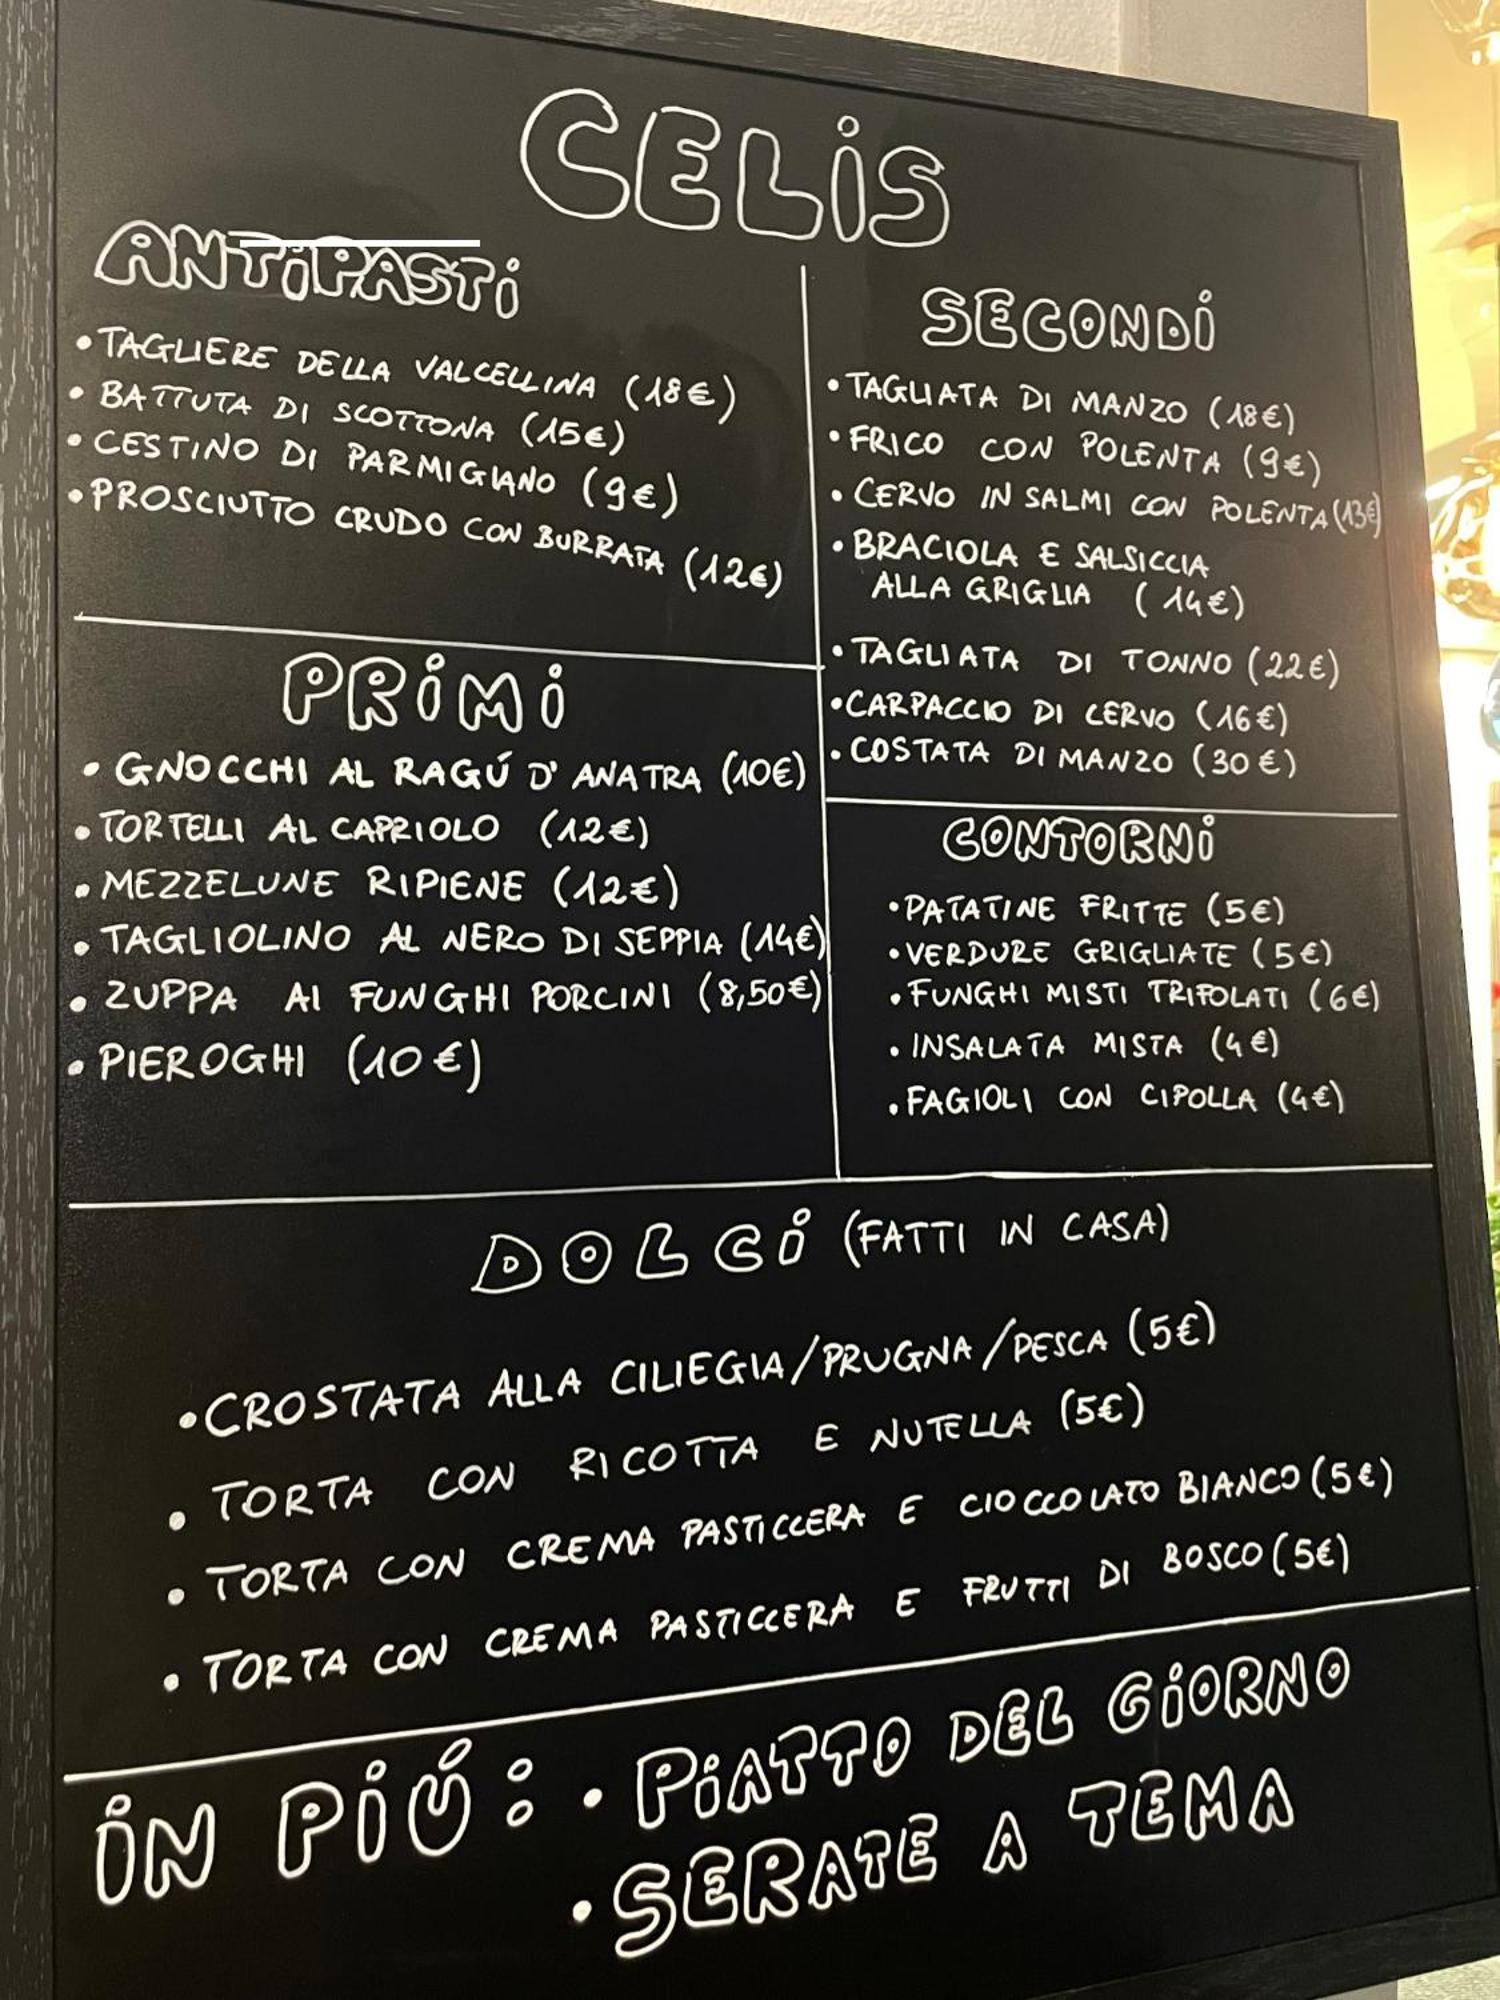 CELIS
ANTIPASTI
• TAGLIERE DELLA VALCELLINA (18€)
• BATTUTA DI SCOTTONA (15€)
• CESTINO DI PARMIGIANO (9€)
• PROSCIUTTO CRUDO CON BURRATA (12€)
PRIMI
• GNOCCHI AL RAGÚ D'ANATRA (10€)
• TORTELLI AL CAPRIOLO (12€)
• MEZZELUNE RIPIENE (12€)
• TAGLIOLINO AL NERO DI SEPPIA (14€)
• ZUPPA AI FUNGHI PORCINI (8,50€)
• PIEROGHI (10€)
SECONDI
• TAGLIATA DI MANZO (18€)
• FRICO CON POLENTA (9€)
• CERVO IN SALMI CON POLENTA (13€)
• BRACIOLA E SALSICCIA
ALLA GRIGLIA (14€)
• TAGLIATA DI TONNO (22€)
• CARPACCIO DI CERVO (16€)
• COSTATA DI MANZO (30€)
CONTORNI
• PATATINE FRITTE (5€)
• VERDURE GRIGLIATE (5€)
• FUNGHI MISTI TRIFOLATI (6€)
• INSALATA MISTA (4€)
• FAGIOLI CON CIPOLLA (4€)
DOLCI (FATTI IN CASA)
• CROSTATA ALLA CILIEGIA/PRUGNA/PESCA (5€)
• TORTA CON RICOTTA E NUTELLA (5€)
• TORTA CON CREMA PASTICCERA E CIOCCOLATO BIANCO (5€)
• TORTA CON CREMA PASTICCERA E FRUTTI DI BOSCO (5€)
IN PIÚ: • PIATTO DEL GIORNO
• SERATE A TEMA